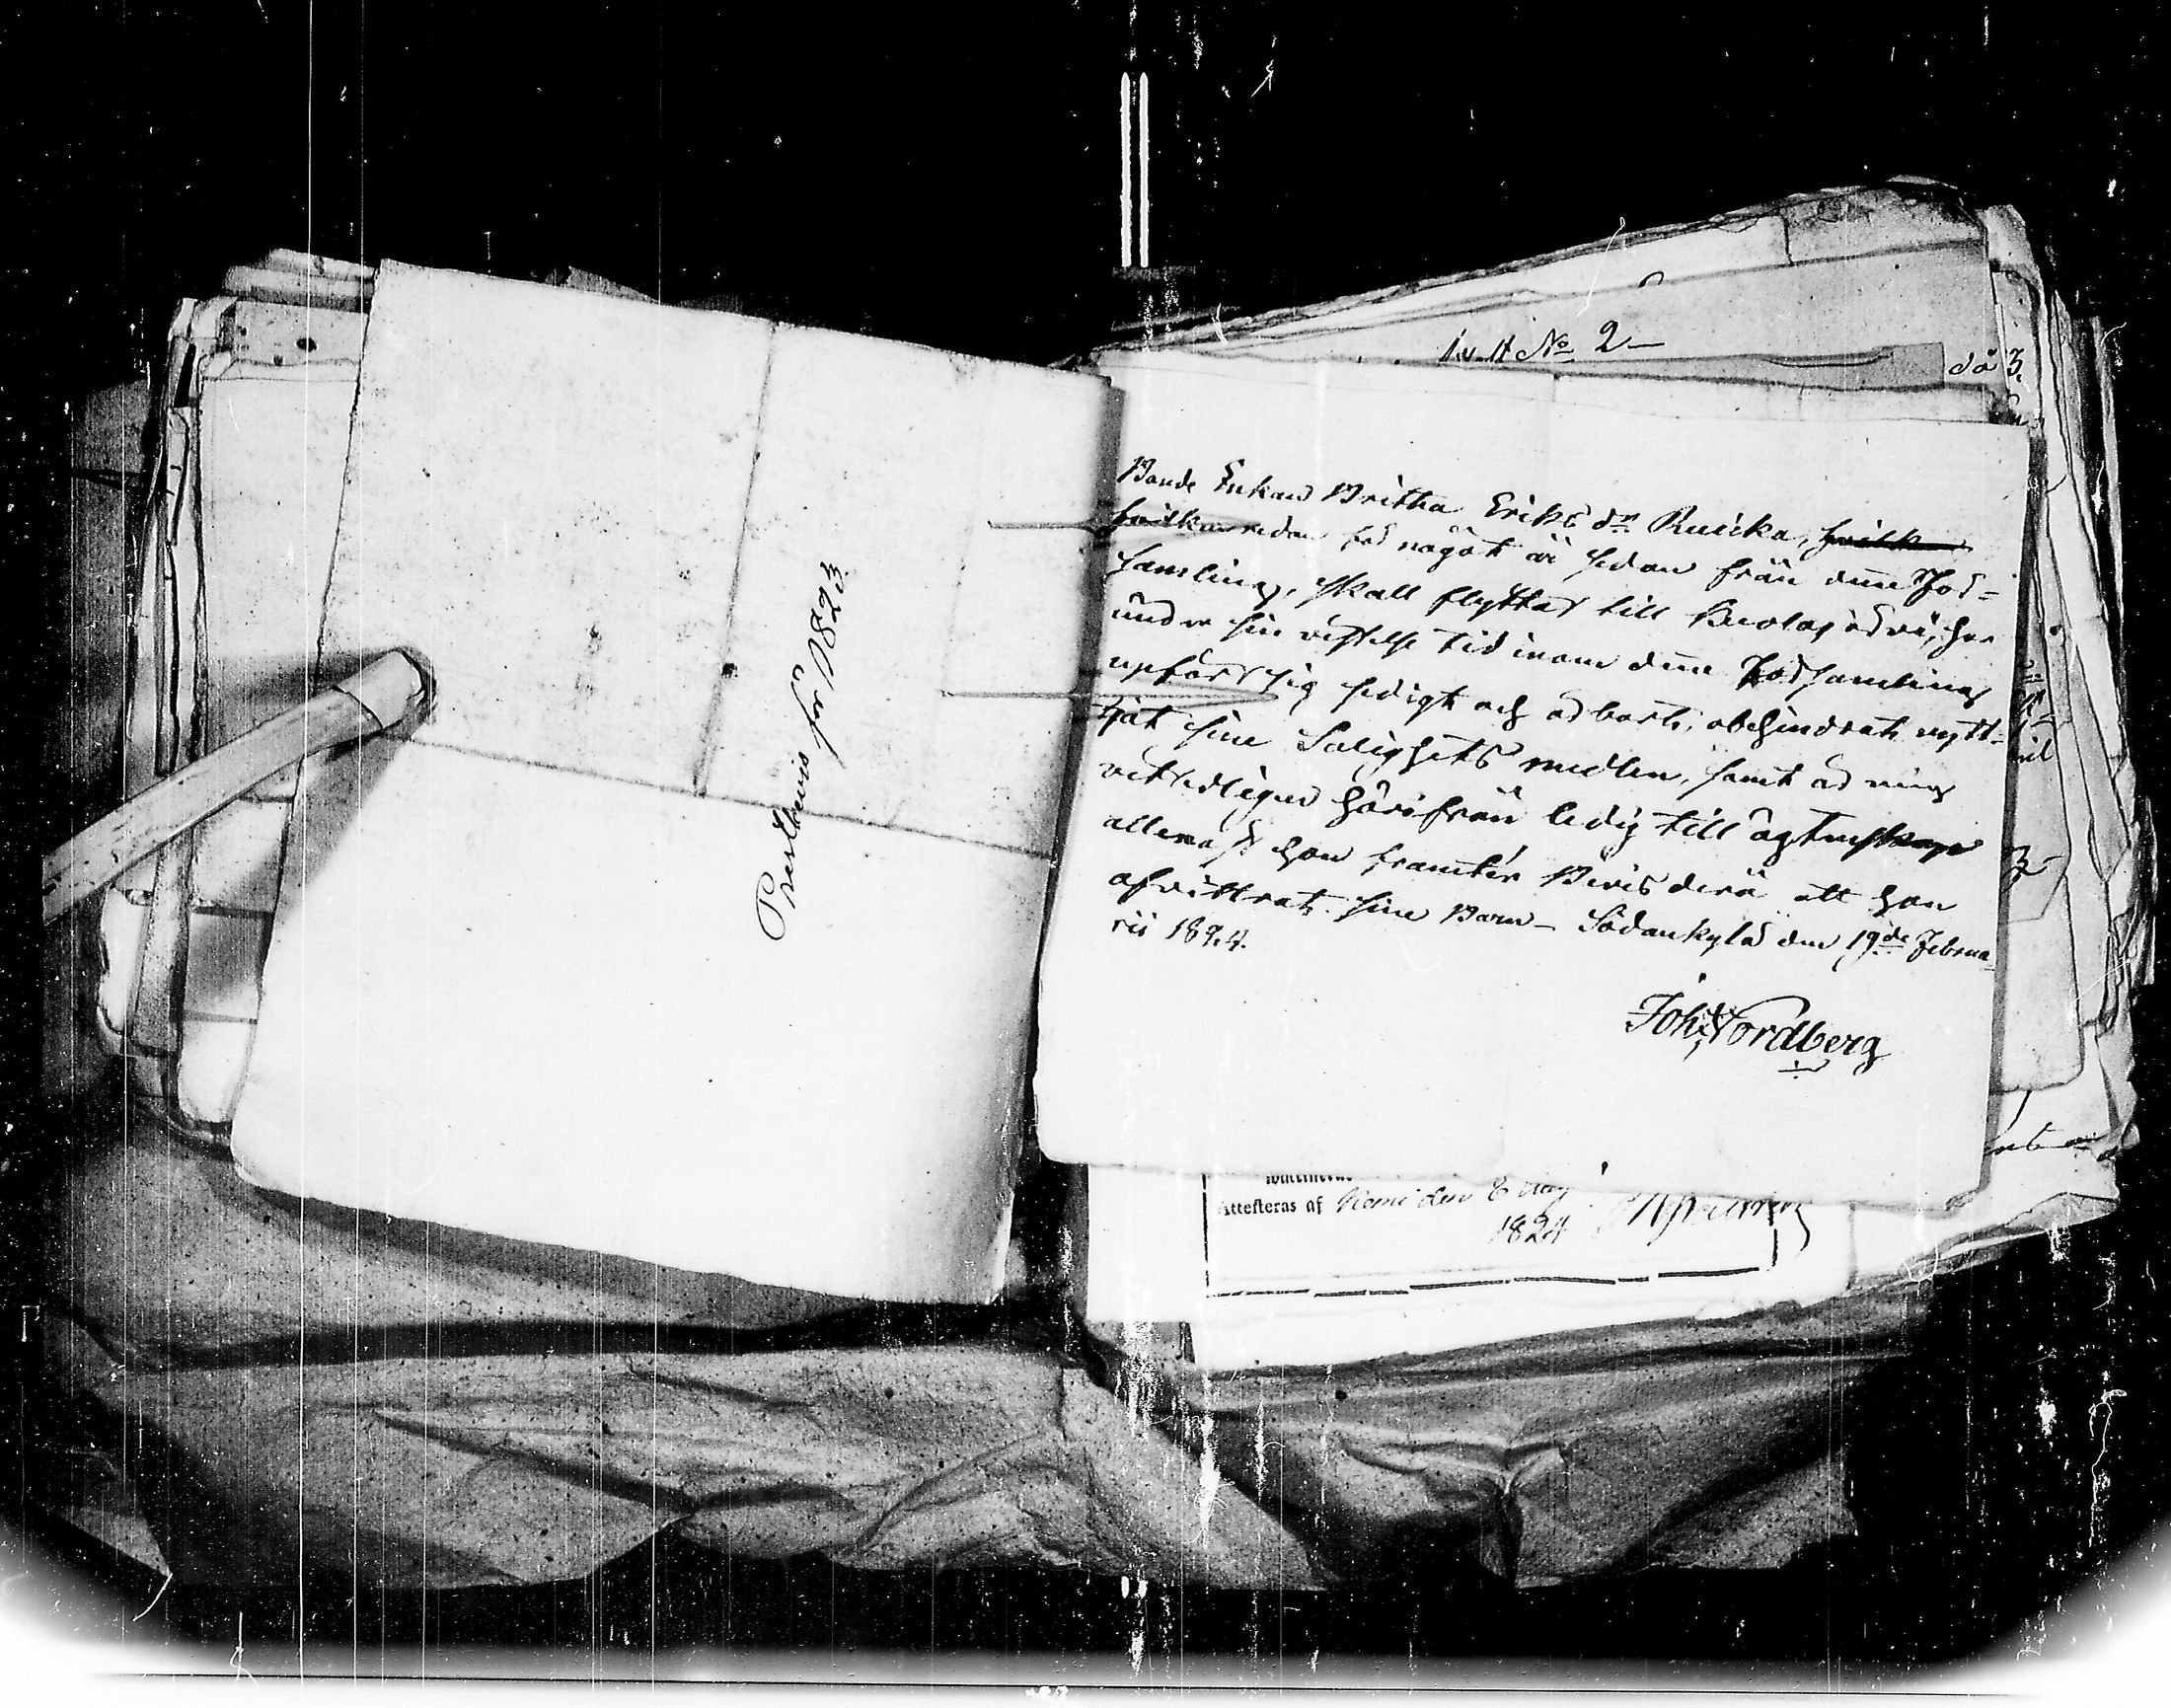 Prestbevis för 1823
No 2
då 3.
Bonde Enkan Britha Eriks dr Ruicka,
redan för något år sedan från denne För=
samling, skall flyttat till Kuolajärvi, har
under sin vistelse tid inom denne Församling
uppfört sig sedigt och ärbart; obehindrat nytt=
jat sine Salighets medlen, samt är mig
veterligen härifrån ledig till ägtenskap
allenast hon framter Bevis derå att hon
afvittrat sine Barn – Sodankylä den 19de Februa=
rii 1824.
Joh. Nordberg
Attesteras af Kemi den 8 Maj
1824